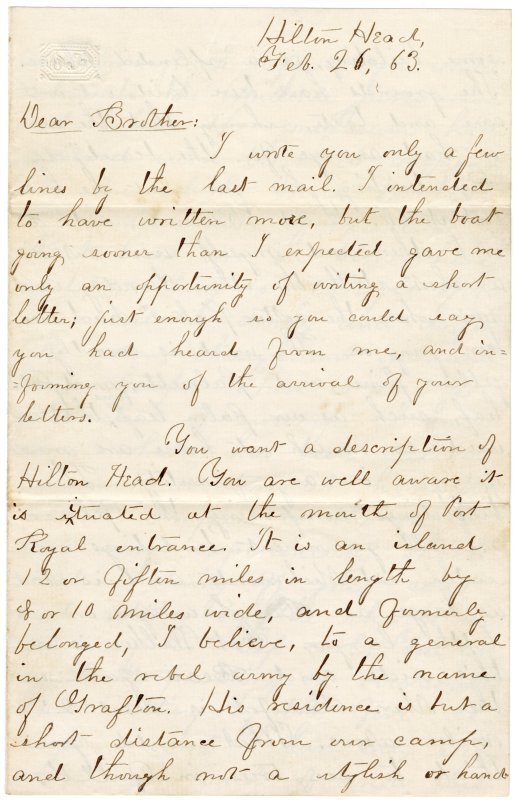 Hilton Head,
Feb. 26, 63.
Dear Brother:
I wrote you only a few
lines by the last mail. I intended
to have written more, but the boat
going sooner than I expected gave me
only an opportunity of writing a short
letter; just enough so you could say
you had heard from me, and in=
=forming you of the arrival of your
letters.
You want a description of
Hilton Head. You are well aware it
is situated at the mouth of Port
Royal entrance. It is an island
12 or fiften miles in length by
8 or 10 miles wide, and formerly
belonged, I believe, to a general
in the rebel army by the name
of Grafton. His residence is but a
short distance from our camp,
and though not a stylish or hand